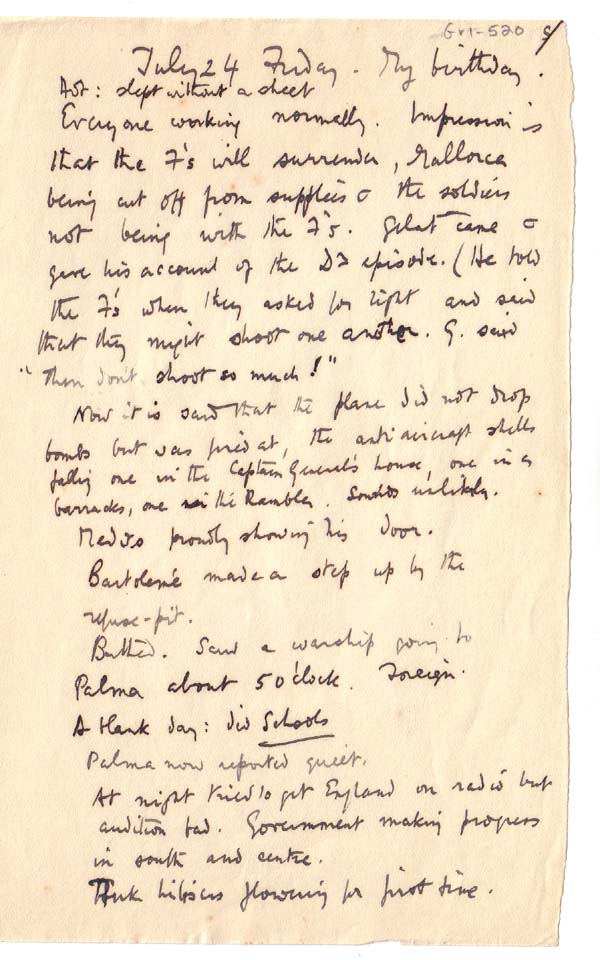 Gr1-520
July 24 Friday. My birthday.
Hot: slept without a sheet
Everyone working normally. Impression is
that the F's will surrender, Mallorca
being cut off from supplies & the soldiers
not being with the F's. Gelat came &
gave his account of the episode. (He told
the F's when they asked for light and said
that they might shoot one another. G. said
"Then don't shoot so much!"
Now it is said that the plane did not drop
bombs but was fired at, the antiaircraft shells
falling one in the Captain General's house, one in a
barracks, one in the Rambla. Sounds unlikely.
proudly showing his door.
Bartolomé made a step up by the
refuse-pit.
Bathed. Saw a warship going to
Palma about 5 o'clock. Foreign.
A blank day: did Schools
Palma now reported quiet.
At night tried to get England on radio but
audition bad. Government making progress
in south and centre.
hibiscus flowering for first time.